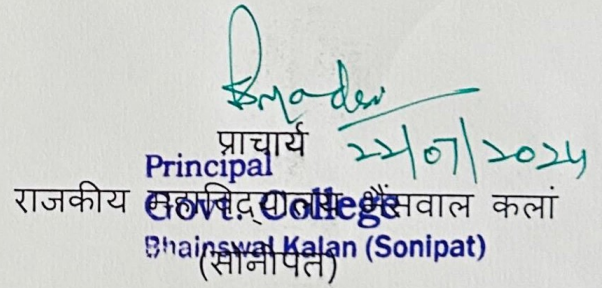 प्राचार्य
22/07/2024
Principal
राजकीय महाविद्यालय भैंसवाल कलां
Govt. College
Bhainswal Kalan (Sonipat)
(सोनीपत)